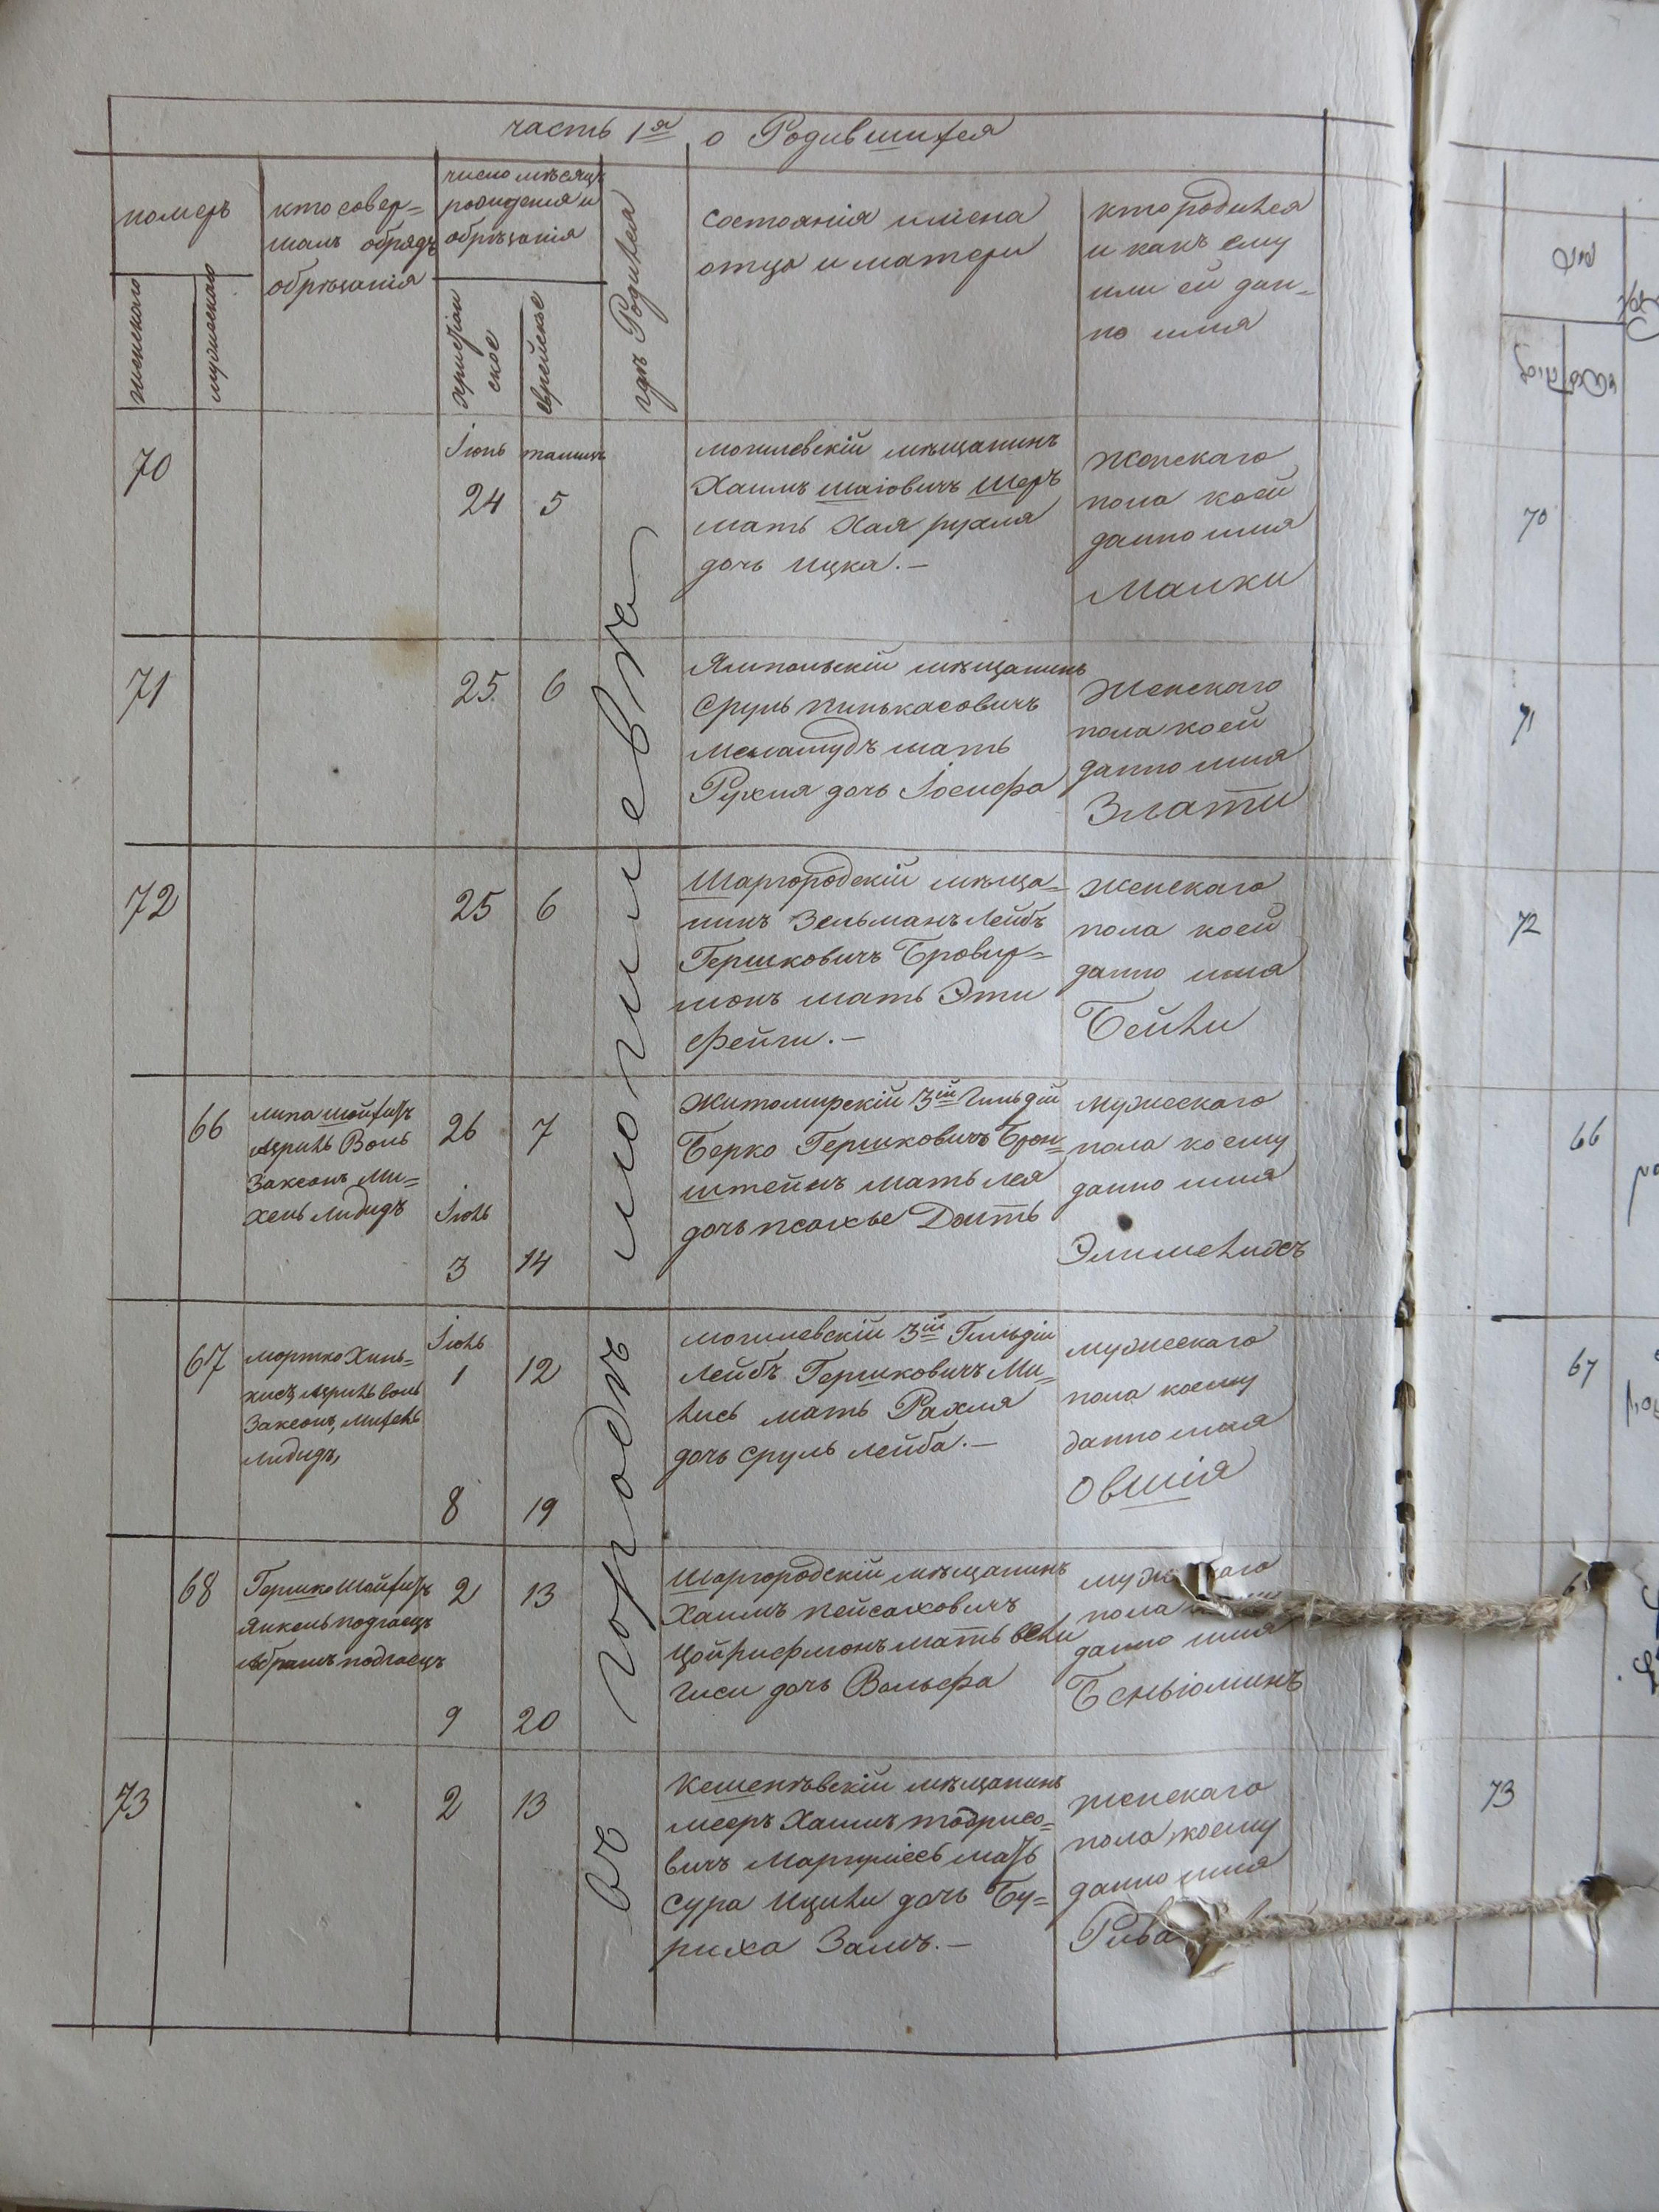 часть 1я о Родившихся
номеръ
женскаго
мужескаго
кто совер=
шалъ обрядъ
обрѣзанія
число мѣсяцъ
рождения и
обрѣзанія
христіан
ское
еврейское
гдѣ Родился
состоянія имена
отца и матери
кто родился
и какъ ему
или ей дан=
но имя
въ городѣ могилевѣ
70
Іюнь
24
тамизъ
5
могилевскій мѣщанинъ
Хаимъ Шаіовичъ Шеръ
мать Хая рухля
дочь ицка.—
женскаго
пола коей
данно имя
Малки
71
25
6
Ямпольскій мѣщанинъ
Сруль пинькасовичъ
мать
Рухля дочь Іосифа
женскаго
пола коей
данно имя
Злати
72
25
6
Шаргородскій мѣща=
нинъ Зельманъ Лейбъ
Гершковичъ Бровер=
монъ мать Эти
Фейги.—
женскаго
пола коей
данно имя
Бейли
66
липа
Заксонъ Ми=
хель лидидъ
26
7
Іюль
3
14
Житомирскій 3ій Гильдіи
Берко Гершковичъ Брон=
штейнъ мать лея
дочь псахье
мужескаго
пола коему
данно имя
Элимелихъ
67
мортко Хинь=
Заксонъ, михель
лидидъ,
Іюль
1
12
8
19
могилевскій 3ій Гильдіи
Лейбъ Гершковичъ Ми=
лись мать Рахля
дочь сруль лейба.—
мужескаго
пола коему
данно имя
Овшія
68
Гершко
Янкель подгаецъ
Абрамъ подгаецъ
2
13
9
20
Шаргородскій мѣщанинъ
Хаимъ пейсаховичъ
мать
гиси дочь Вольфа
пола
данно имя
Беньюминъ
73
2
13
мѣщанинъ
мееръ Хаимъ тодрисо=
вичъ Маргуліесъ мать
сура ицили дочь Бу=
риха Залм.—
женскаго
пола коему
данно имя
Рива
70
71
72
66
67
73